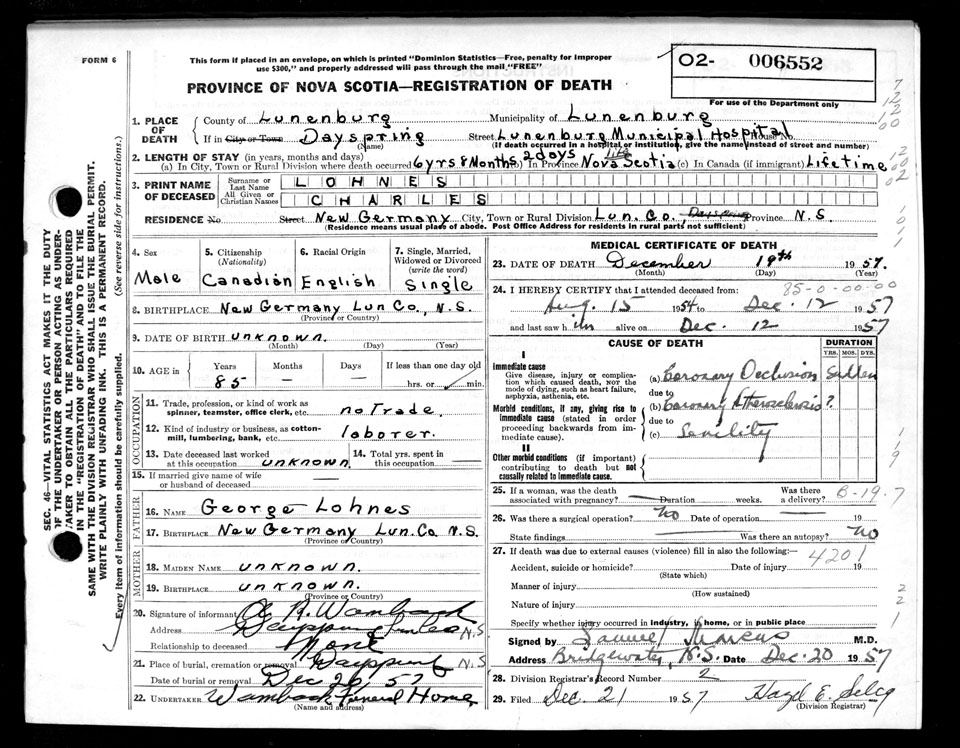 FORM 6
This form if placed in an envelope, on which is printed "Dominion Statistics—Free, penalty for improper
use $300," and properly addressed will pass through the mail "FREE"
O2- 006552
PROVINCE OF NOVA SCOTIA—REGISTRATION OF DEATH
For use of the Department only
1. PLACE OF DEATH
County of Lunenburg Municipality of Lunenburg
If in City or Town Dayspring Street Lunenburg Municipal Hospital House No.
(Name) (If death occurred in a hospital or institution, give the name instead of street and number)
2. LENGTH OF STAY (in years, months and days)
(a) In City, Town or Rural Division where death occurred 6 yrs 8 Months, 2 days (b) In Province Nova Scotia life (c) In Canada (if immigrant) Lifetime
3. PRINT NAME OF DECEASED
Surname or Last Name LOHNES
All Given or Christian Names CHARLES
RESIDENCE No. Street New Germany City, Town or Rural Division Lun. Co., Dayspring Province N.S.
(Residence means usual place of abode. Post Office Address for residents in rural parts not sufficient)
4. Sex
Male
5. Citizenship
(Nationality)
Canadian
6. Racial Origin
English
7. Single, Married,
Widowed or Divorced
(write the word)
Single
8. BIRTHPLACE New Germany Lun Co., N.S.
(Province or Country)
9. DATE OF BIRTH unknown.
(Month) (Day) (Year)
10. AGE in Years Months Days If less than one day old
85 — — hrs. or min.
OCCUPATION
11. Trade, profession, or kind of work as
spinner, teamster, office clerk, etc. no Trade.
12. Kind of industry or business, as cotton-
mill, lumbering, bank, etc. laborer.
13. Date deceased last worked
at this occupation unknown
14. Total yrs. spent in
this occupation —
15. If married give name of wife
or husband of deceased —
FATHER
16. NAME George Lohnes
17. BIRTHPLACE New Germany Lun. Co. N.S.
(Province or Country)
MOTHER
18. MAIDEN NAME unknown.
19. BIRTHPLACE unknown.
(Province or Country)
20. Signature of informant R. Wamback
Address N.S
Relationship to deceased None
21. Place of burial, cremation or removal N.S
Date of burial or removal Dec 20, 57
22. UNDERTAKER Wamback Funeral Home
(Name and address)
MEDICAL CERTIFICATE OF DEATH
23. DATE OF DEATH December 19th 1957.
(Month) (Day) (Year)
85-0-00-00-00
24. I HEREBY CERTIFY that I attended deceased from:
Aug. 15 1954 to Dec. 12 1957
and last saw him alive on Dec. 12 1957
CAUSE OF DEATH
DURATION
YRS. MOS. DYS.
I
Immediate cause
Give disease, injury or complica-
tion which caused death, NOT the
mode of dying, such as heart failure,
asphyxia, asthenia, etc.
(a) Coronary Occlusion Sudden
due to
Morbid conditions, if any, giving rise to
immediate cause (stated in order
proceeding backwards from im-
mediate cause).
(b) Coronary Atherosclerosis ?
due to
(c) Senility
II
Other morbid conditions (if important)
contributing to death but not
causally related to immediate cause.
25. If a woman, was the death
associated with pregnancy? — Duration weeks. Was there
a delivery? —
B-19.7
26. Was there a surgical operation? No Date of operation — 19
State findings — Was there an autopsy? No
27. If death was due to external causes (violence) fill in also the following:—
4201
Accident, suicide or homicide? Date of injury 19
(State which)
Manner of injury
(How sustained)
Nature of injury
Specify whether injury occurred in industry, in home, or in public place
Signed by Samuel Marcus M.D.
Address Bridgewater, N.S. Date Dec. 20 1957
28. Division Registrar's Record Number 2
29. Filed Dec. 21 1957 Hazel E.
(Division Registrar)
SEC. 46—VITAL STATISTICS ACT MAKES IT THE DUTY
OF THE UNDERTAKER OR PERSON ACTING AS UNDER-
TAKER TO OBTAIN ALL THE PARTICULARS REQUIRED
IN THE "REGISTRATION OF DEATH" AND TO FILE THE
SAME WITH THE DIVISION REGISTRAR WHO SHALL ISSUE THE BURIAL PERMIT.
WRITE PLAINLY WITH UNFADING INK. THIS IS A PERMANENT RECORD.
Every item of information should be carefully supplied. (See reverse side for instructions.)